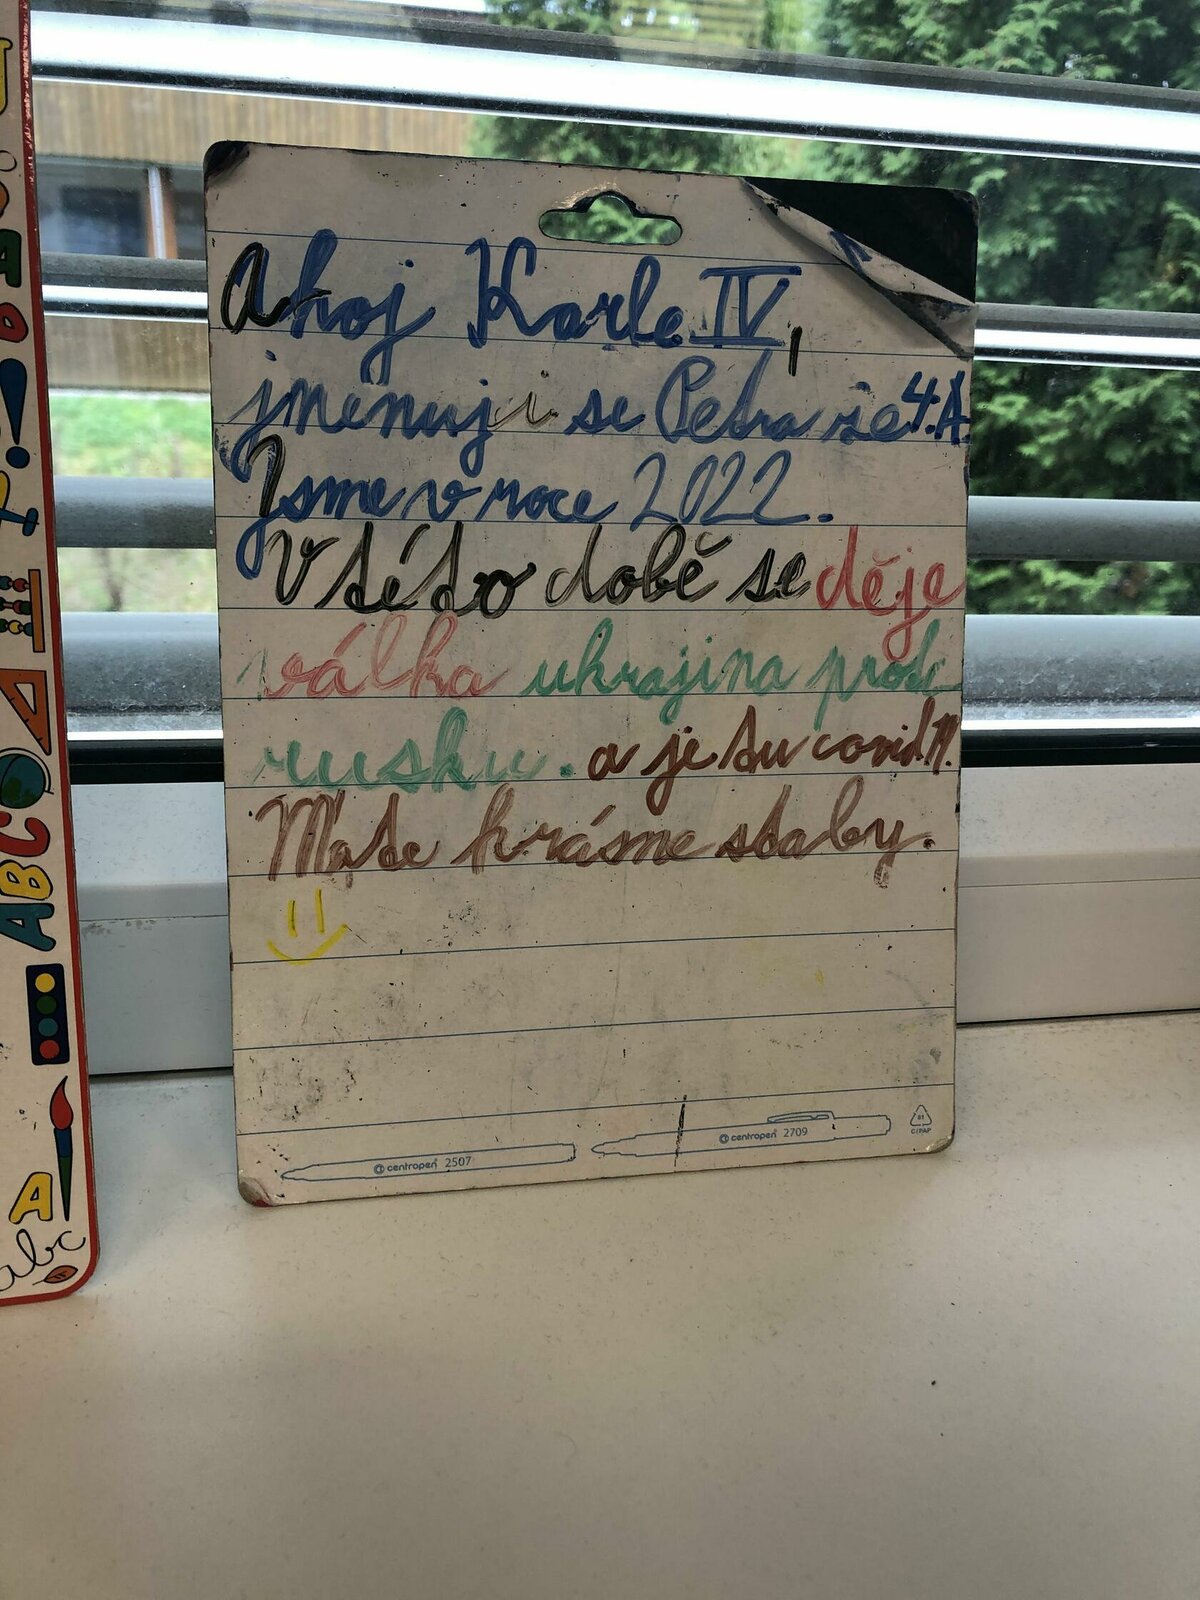 Ahoj Karle IV,
jmenuji se Petra ze 4.A.
Jsme v roce 2022.
V této době se děje
válka ukrajina proti
rusku. a je tu covid 19.
Máte krásne staby.
centropen 2507
centropen 2709
81
C/PAP
ABCD
A
abc